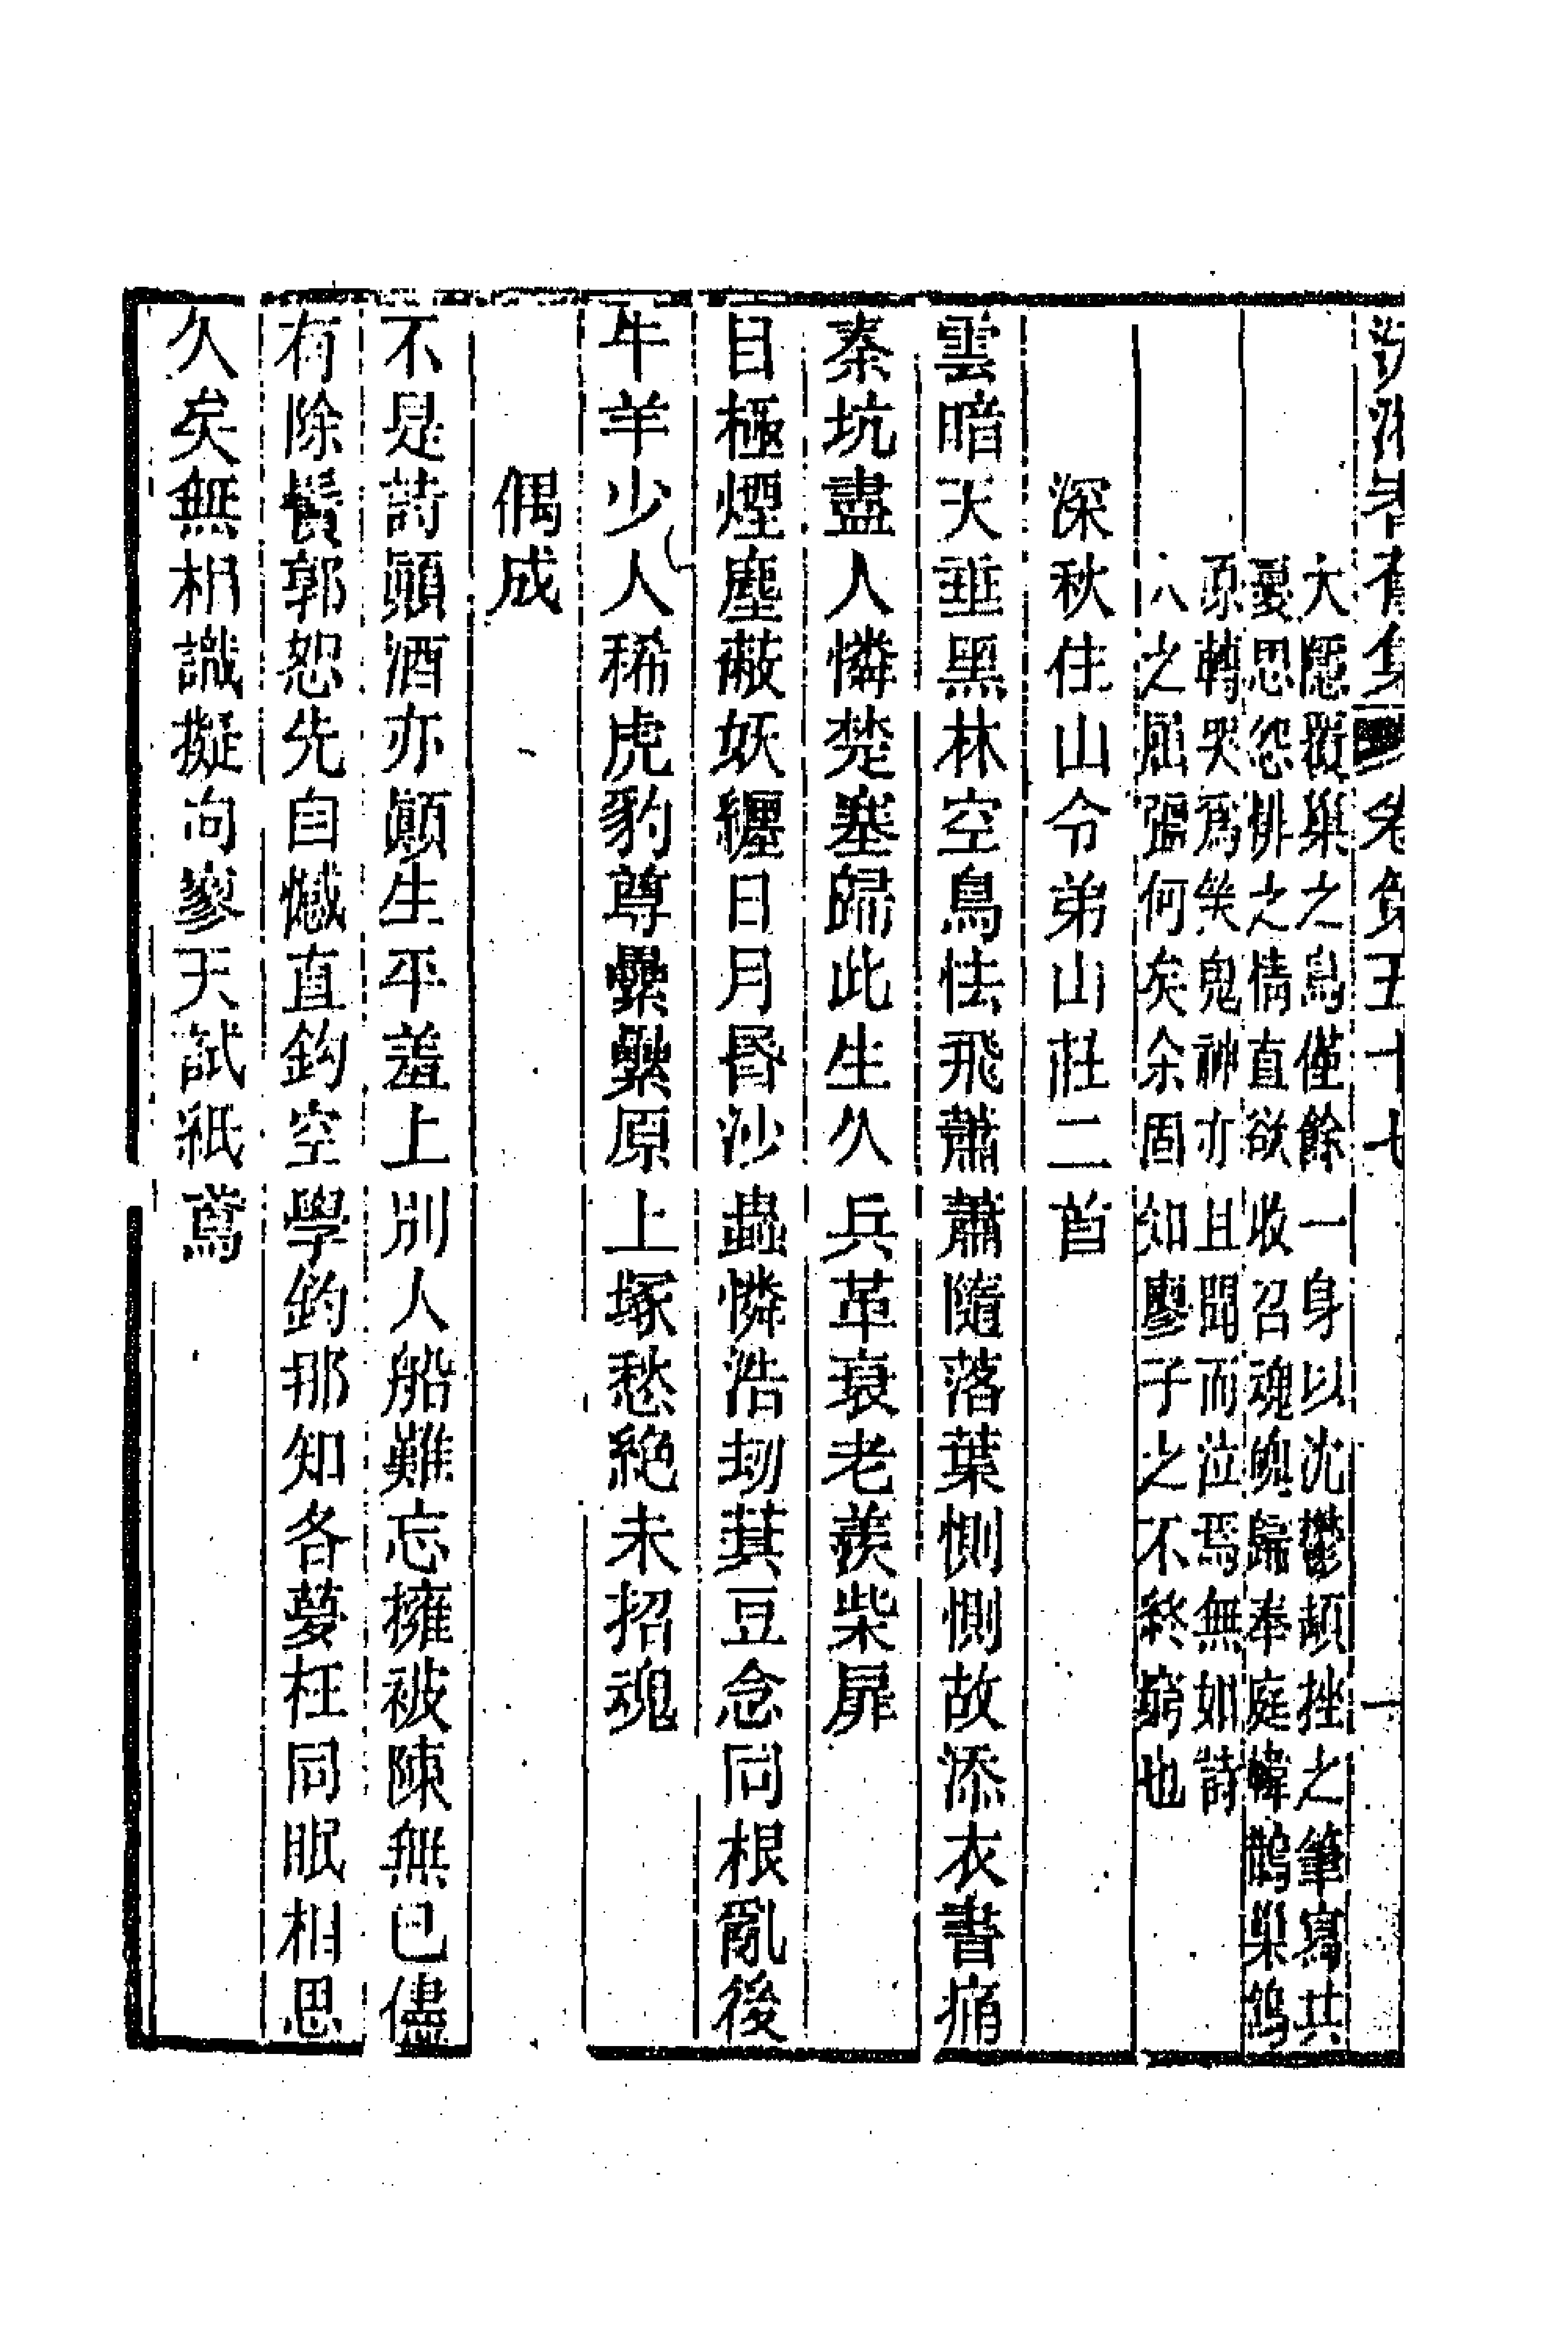 沅湘耆舊集卷第五十七 一
大隱𥨊巢之鳥僅餘一身以沈鬱頓挫之筆寫其
憂思怨悱之情直欲收召魂魄歸奉庭幃鵲巢鴿
原轉哭爲笑鬼神亦且聞而泣焉無如詩
人之屈彊何矣余固知廖子之不終窮也
深秋住山令弟山莊二首
雲暗天垂黑林空鳥怯飛蕭蕭隨落葉惻惻故添衣書痛
秦坑盡人憐楚塞歸此生久兵革衰老羨柴扉
目極煙塵蔽妖纏日月昏沙蟲憐浩劫萁豆念同根亂後
牛羊少人稀虎豹尊纍纍原上塚愁絶未招魂
偶成
不是詩顚酒亦顚生平羞上別人船難忘擁被陳無已儘
有除鬚郭恕先自憾直鈎空學釣那知各夢枉同眠相思
久矣無相識擬向寥天試紙鳶